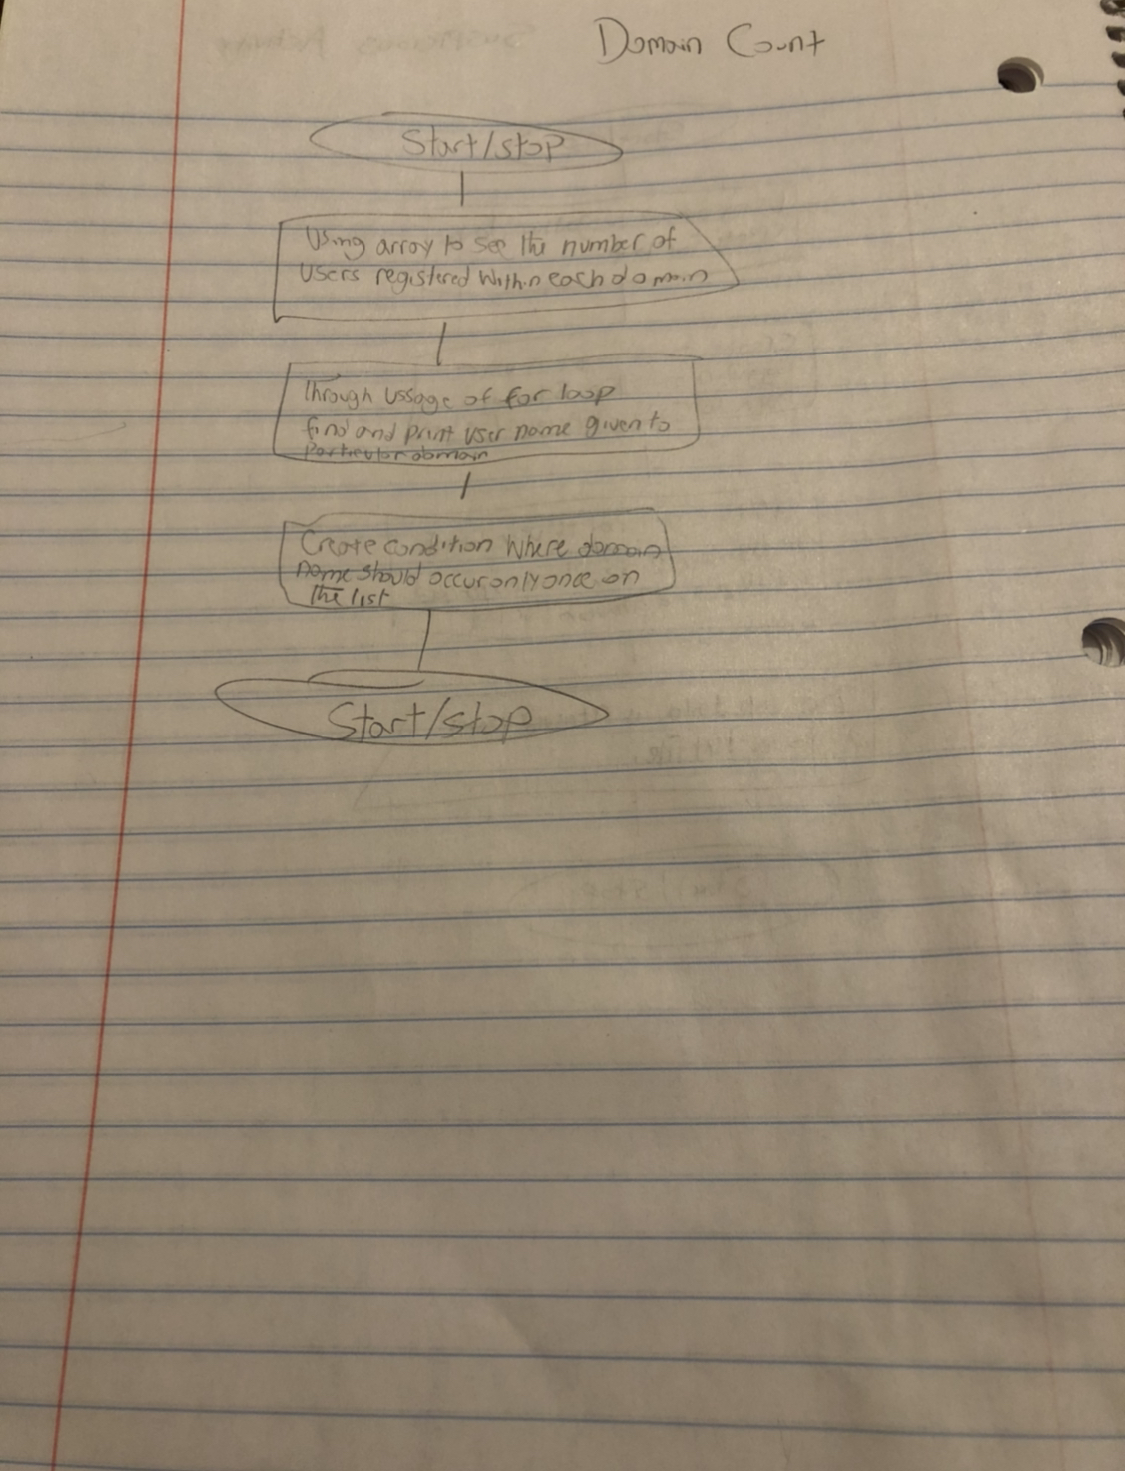 Domain Count
Start/stop
Using array to see the number of
users registered within each domain
Through ussage of for loop
find and print user name given to
particular domain
Create condition where domain
name should occur only once on
the list
Start/stop